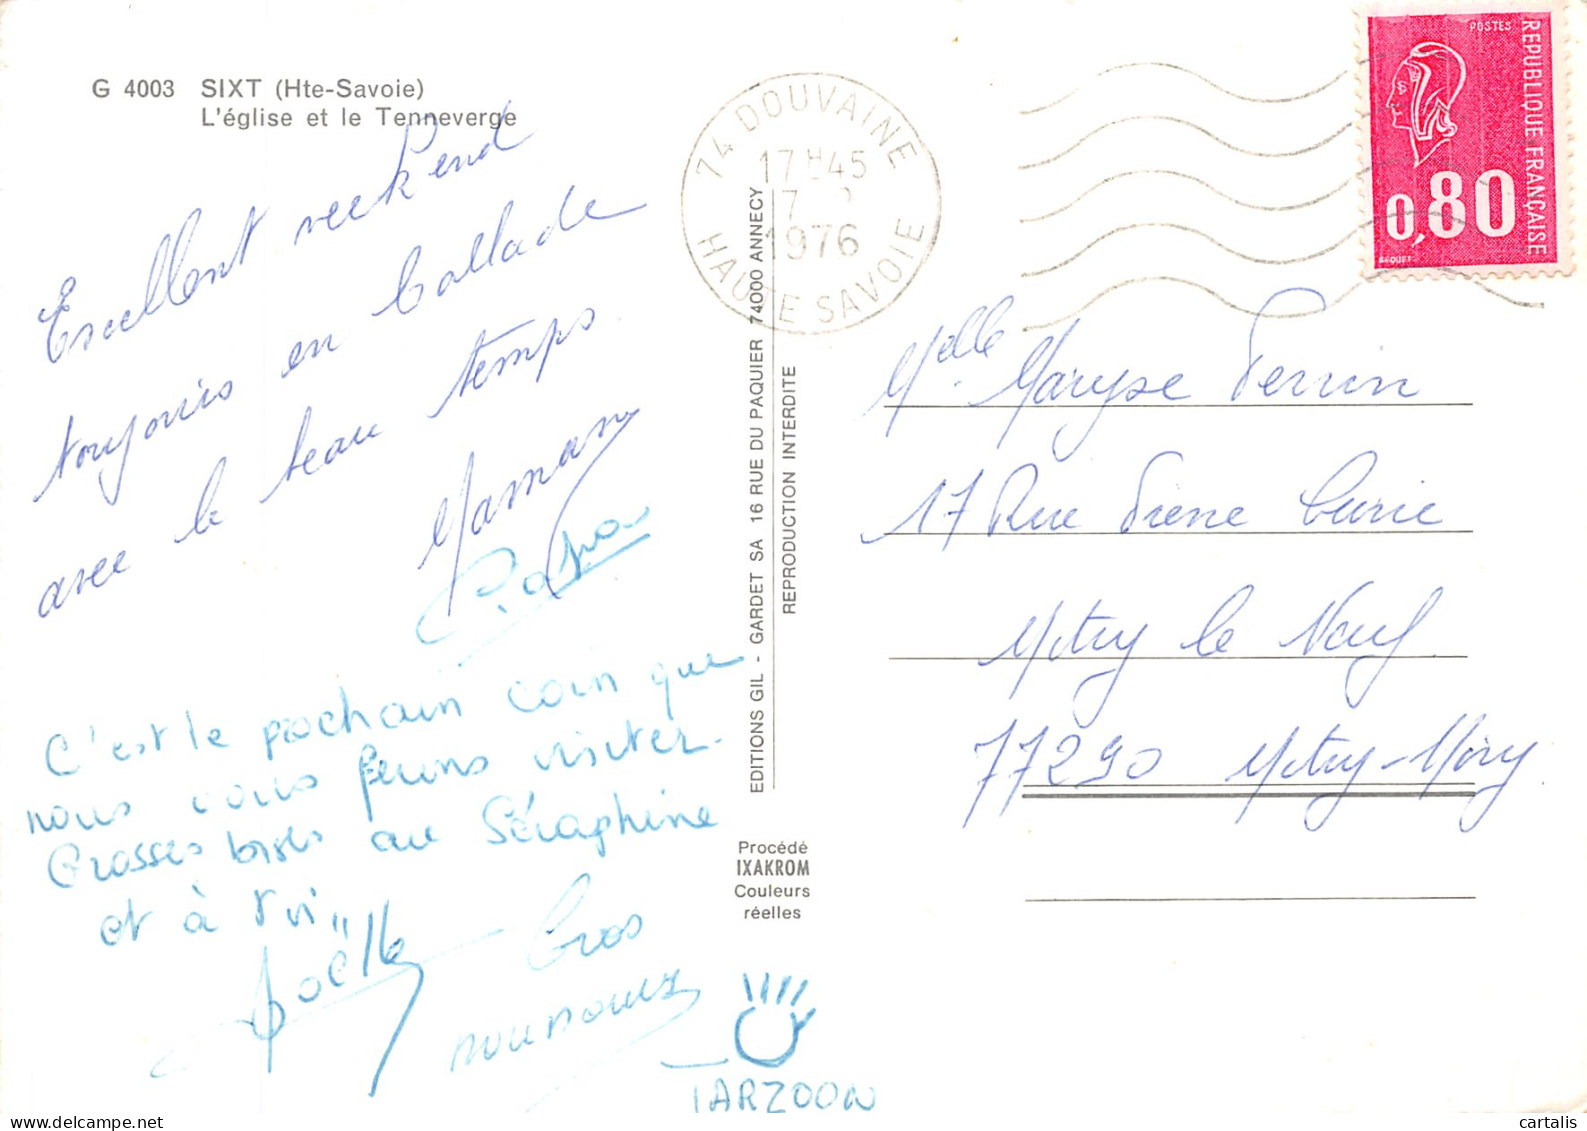 G 4003 SIXT (Hte-Savoie)
L'église et le Tenneverge
Excellent week end
toujours en ballade
avec le beau temps.
Maman
Papa
C'est le prochain coin que
nous vous ferons visiter.
Grosses bises au Séraphine
et à
Joëlle
Gros
nounours
TARZOON
74 DOUVAINE
17H45
7
1976
HAUTE SAVOIE
EDITIONS GIL - GARDET SA 16 RUE DU PAQUIER 74000 ANNECY
REPRODUCTION INTERDITE
Procédé
IXAKROM
Couleurs
réelles
POSTES
REPUBLIQUE FRANÇAISE
0,80
BEQUET
Melle Maryse Perrin
17 Rue Irène Curie
Mitry le Neuf
77290 Mitry-Mory
cartalis